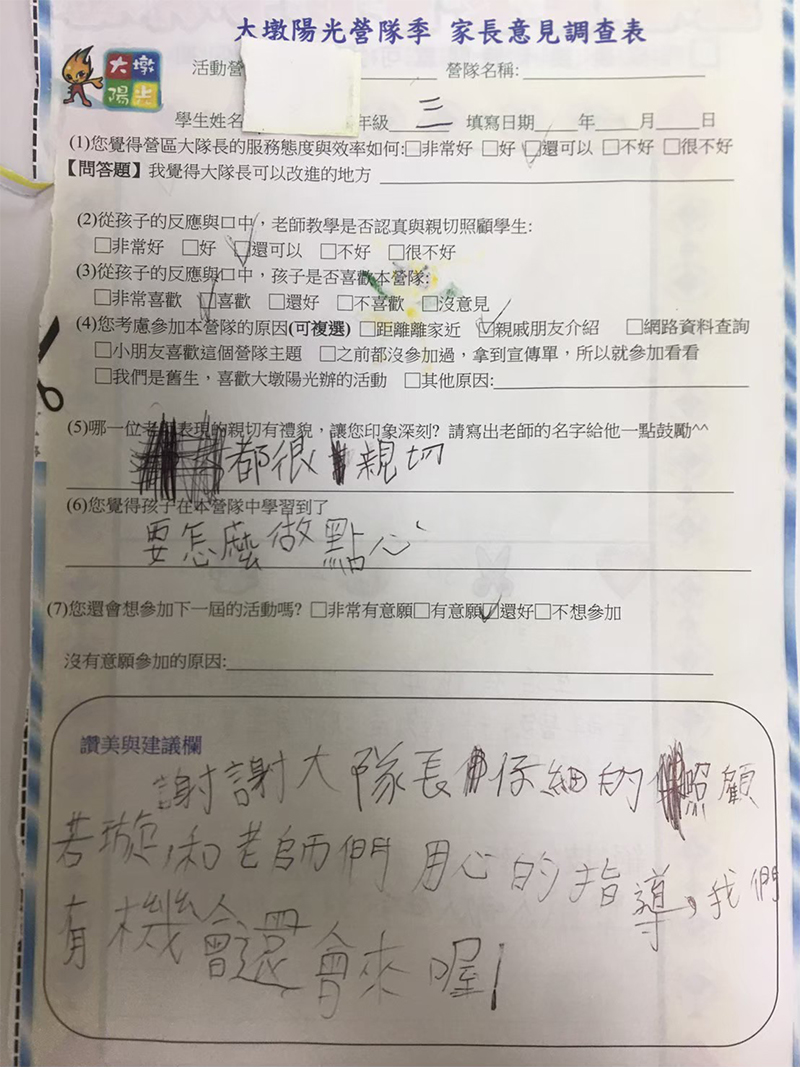 大墩陽光營隊季 家長意見調查表
大墩
陽光
活動營 營隊名稱:
學生姓名 年級 三 填寫日期 年 月 日
(1)您覺得營區大隊長的服務態度與效率如何:□非常好 □好 ☑還可以 □不好 □很不好
【問答題】我覺得大隊長可以改進的地方
(2)從孩子的反應與口中，老師教學是否認真與親切照顧學生:
□非常好 □好 ☑還可以 □不好 □很不好
(3)從孩子的反應與口中，孩子是否喜歡本營隊:
□非常喜歡 ☑喜歡 □還好 □不喜歡 □沒意見
(4)您考慮參加本營隊的原因(可複選) □距離離家近 ☑親戚朋友介紹 □網路資料查詢
□小朋友喜歡這個營隊主題 □之前都沒參加過，拿到宣傳單，所以就參加看看
□我們是舊生，喜歡大墩陽光辦的活動 □其他原因:
(5)哪一位老師表現的親切有禮貌，讓您印象深刻? 請寫出老師的名字給他一點鼓勵^^
都很親切
(6)您覺得孩子在本營隊中學習到了
要怎麼做點心
(7)您還會想參加下一屆的活動嗎? □非常有意願□有意願☑還好□不想參加
沒有意願參加的原因:
讚美與建議欄
謝謝大隊長仔細的照顧
若璇,和老師們用心的指導，我們
有機會還會來喔!